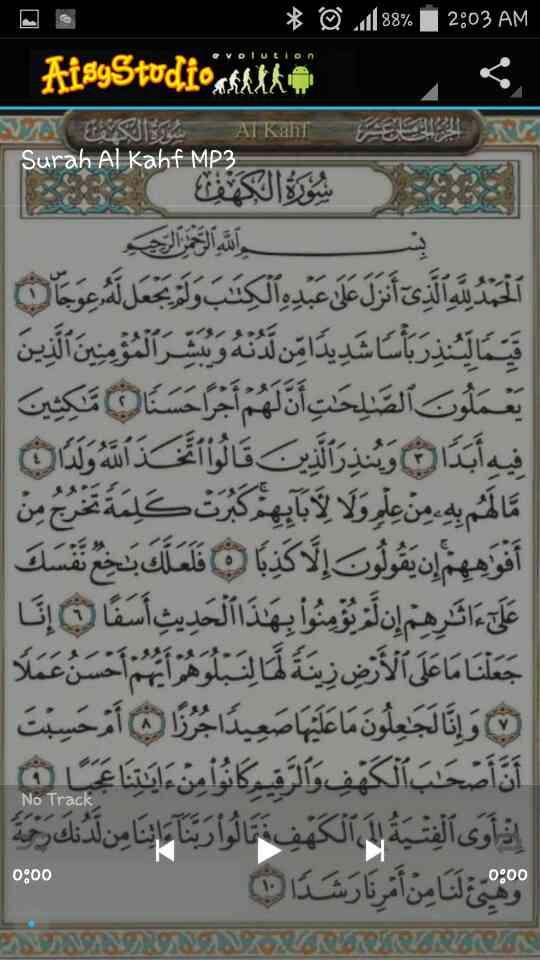 88% 2:03 AM
AisyStudio evolution
سورة الكهف Al Kahf الجزء الخامس عشر
Surah Al Kahf MP3
سُورَةُ الكَهْفِ
بِسْمِ اللَّهِ الرَّحْمَٰنِ الرَّحِيمِ
ٱلْحَمْدُ لِلَّهِ ٱلَّذِىٓ أَنزَلَ عَلَىٰ عَبْدِهِ ٱلْكِتَٰبَ وَلَمْ يَجْعَل لَّهُۥ عِوَجَاۜ ١
قَيِّمًا لِّيُنذِرَ بَأْسًا شَدِيدًا مِّن لَّدُنْهُ وَيُبَشِّرَ ٱلْمُؤْمِنِينَ ٱلَّذِينَ
يَعْمَلُونَ ٱلصَّٰلِحَٰتِ أَنَّ لَهُمْ أَجْرًا حَسَنًا ٢ مَّٰكِثِينَ
فِيهِ أَبَدًا ٣ وَيُنذِرَ ٱلَّذِينَ قَالُوا۟ ٱتَّخَذَ ٱللَّهُ وَلَدًا ٤
مَّا لَهُم بِهِۦ مِنْ عِلْمٍ وَلَا لِـَٔابَآئِهِمْ ۚ كَبُرَتْ كَلِمَةً تَخْرُجُ مِنْ
أَفْوَٰهِهِمْ ۚ إِن يَقُولُونَ إِلَّا كَذِبًا ٥ فَلَعَلَّكَ بَٰخِعٌ نَّفْسَكَ
عَلَىٰٓ ءَاثَٰرِهِمْ إِن لَّمْ يُؤْمِنُوا۟ بِهَٰذَا ٱلْحَدِيثِ أَسَفًا ٦ إِنَّا
جَعَلْنَا مَا عَلَى ٱلْأَرْضِ زِينَةً لَّهَا لِنَبْلُوَهُمْ أَيُّهُمْ أَحْسَنُ عَمَلًا
٧ وَإِنَّا لَجَٰعِلُونَ مَا عَلَيْهَا صَعِيدًا جُرُزًا ٨ أَمْ حَسِبْتَ
أَنَّ أَصْحَٰبَ ٱلْكَهْفِ وَٱلرَّقِيمِ كَانُوا۟ مِنْ ءَايَٰتِنَا عَجَبًا ٩
No Track
إِذْ أَوَى ٱلْفِتْيَةُ إِلَى ٱلْكَهْفِ فَقَالُوا۟ رَبَّنَآ ءَاتِنَا مِن لَّدُنكَ رَحْمَةً
0:00 0:00
وَهَيِّئْ لَنَا مِنْ أَمْرِنَا رَشَدًا ١٠